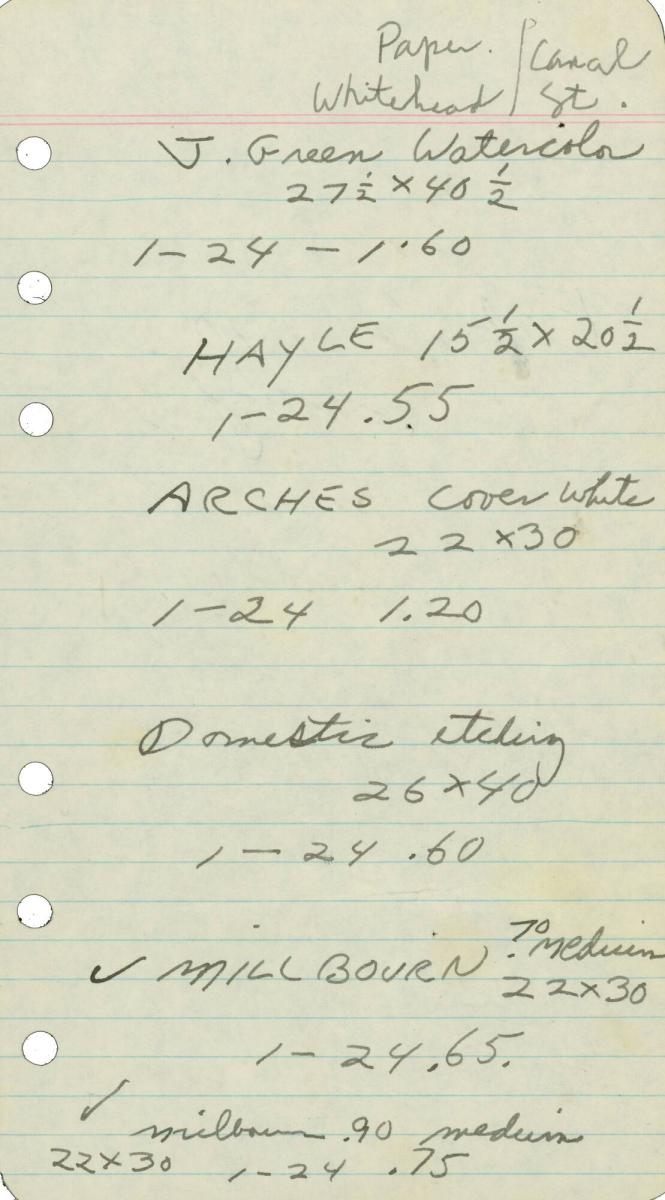 Paper. / Canal
Whitehead / St.
J. Green Watercolor
27 1/2 × 40 1/2
1-24 - 1.60
HAYLE 15 1/2 × 20 1/2
1-24 .55
ARCHES Cover White
22 × 30
1-24 1.20
Domestic etching
26 × 40
1-24 .60
✓ MILLBOURN .70 medium
22×30
1-24 .65.
✓
milbourn .90 medium
22×30 1-24 .75